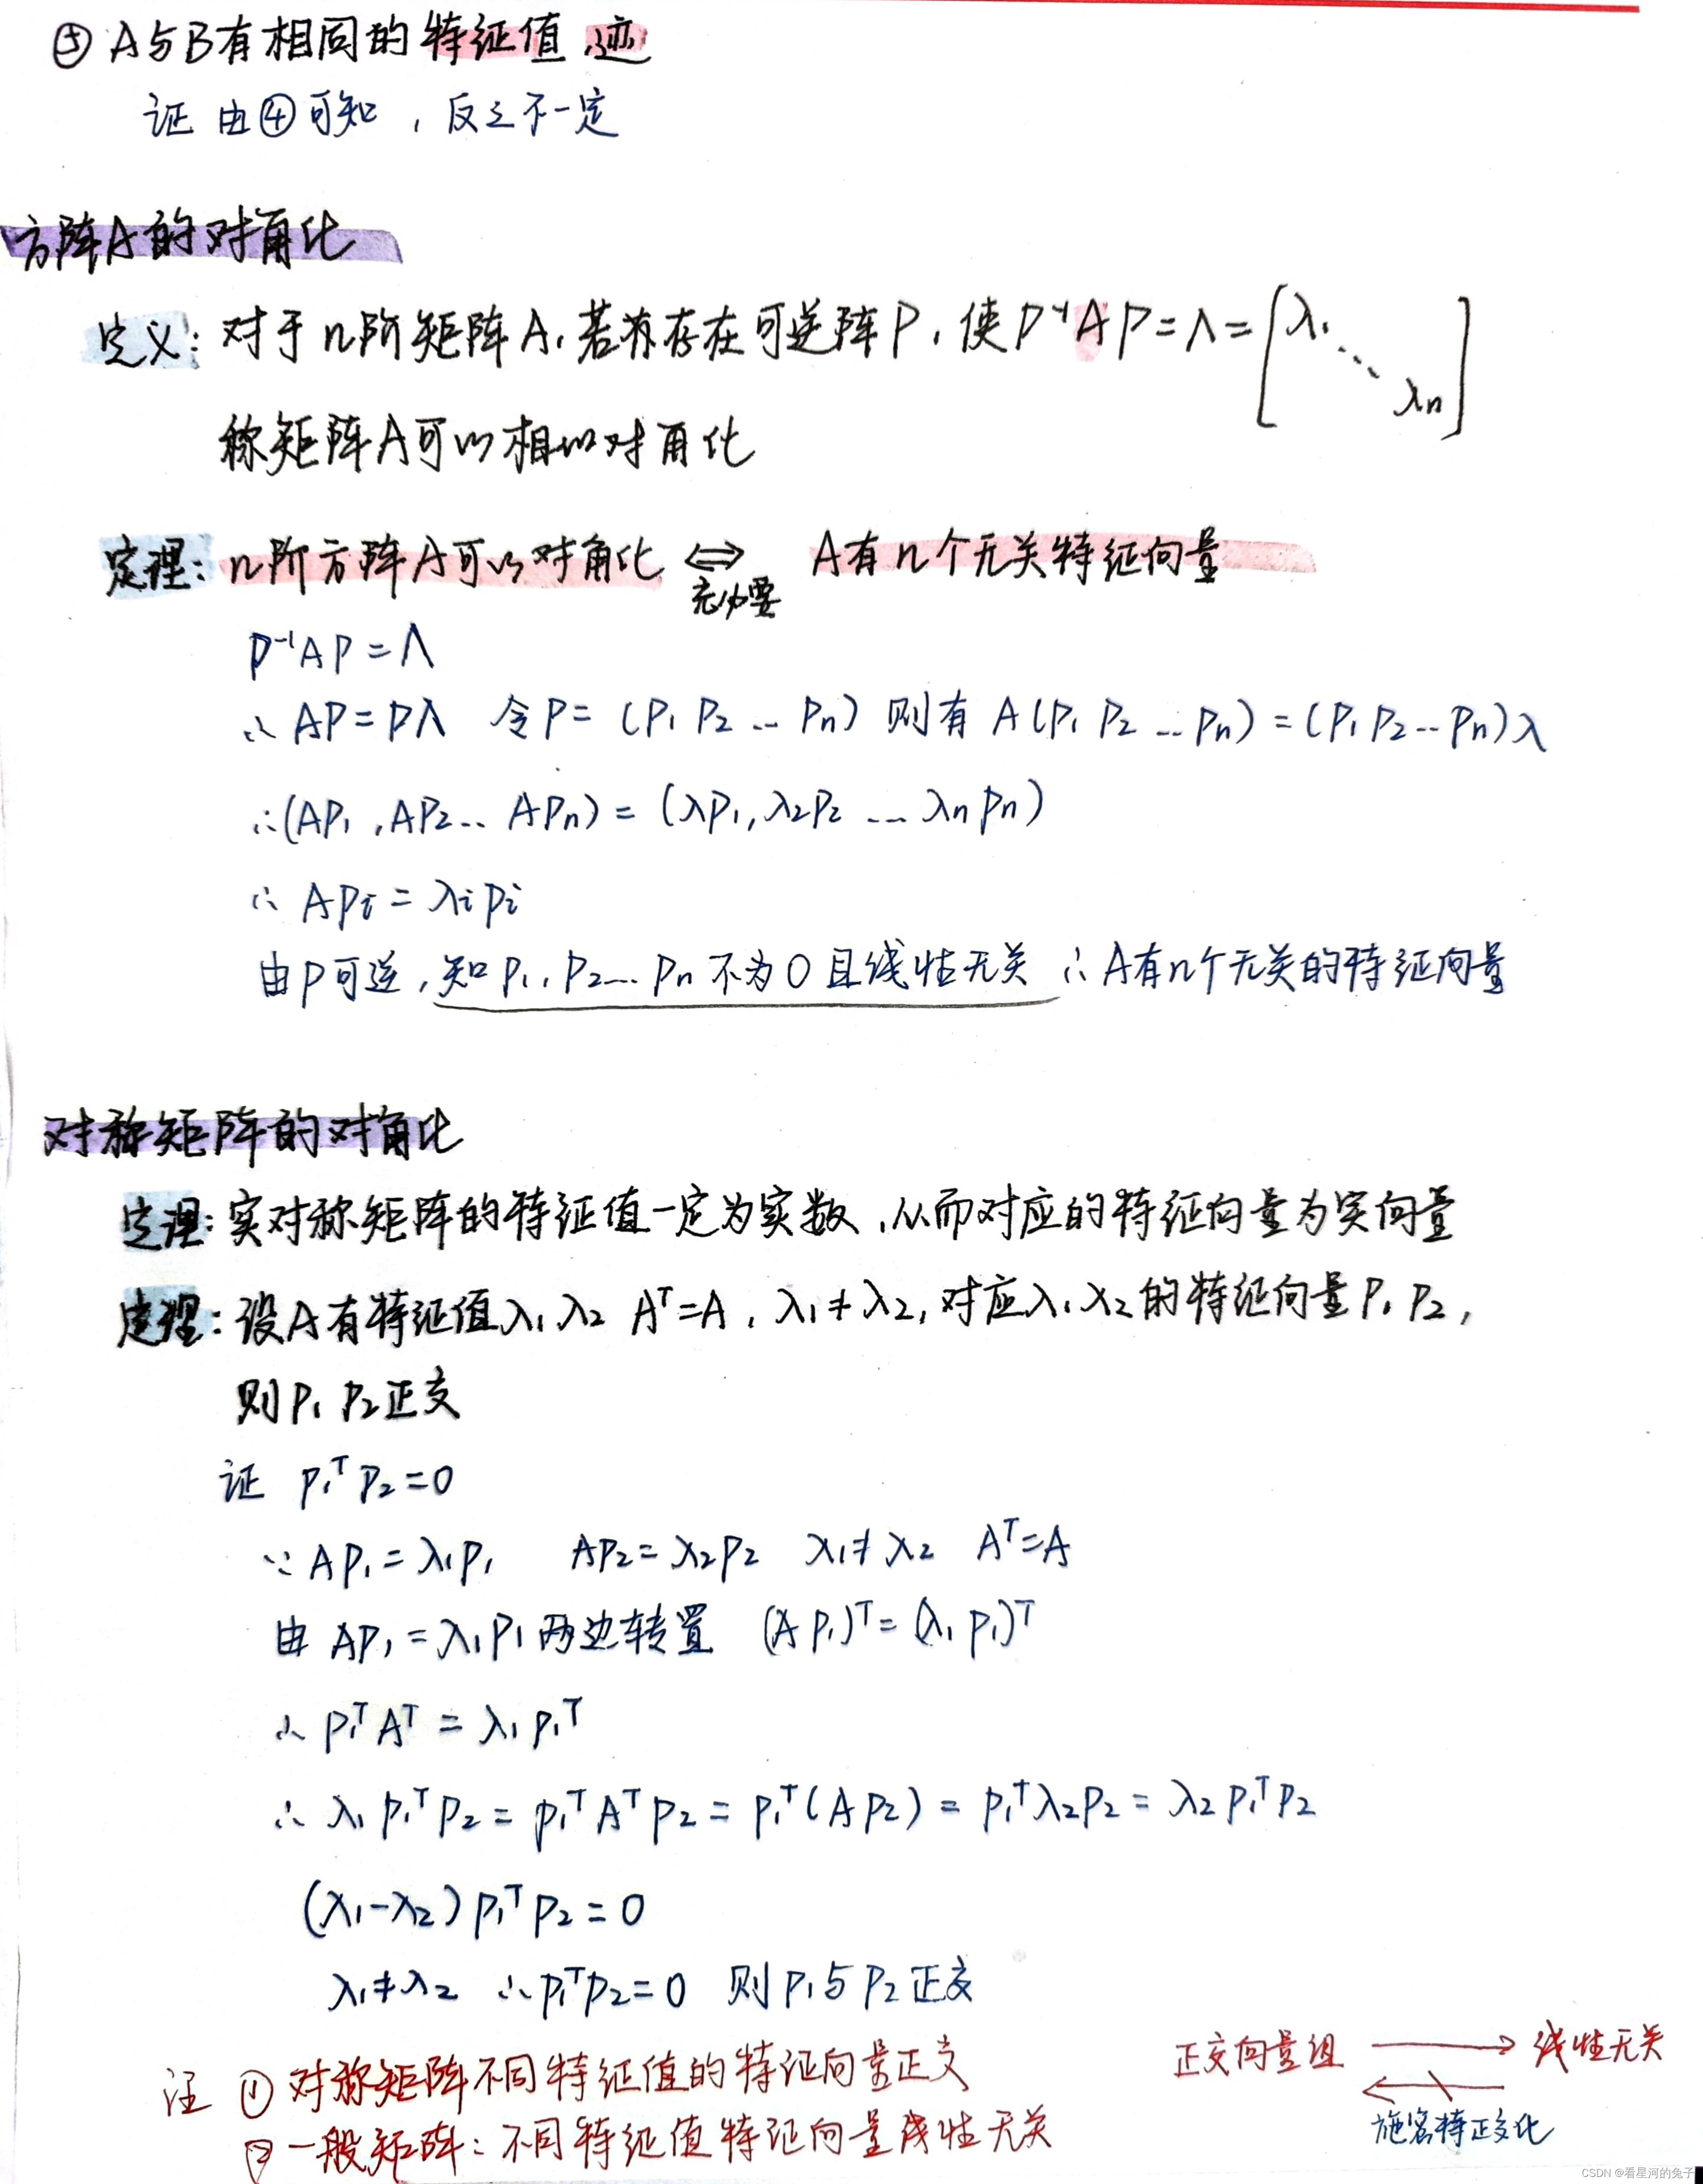 ⑤ A与B有相同的特征值、迹
证 由④可知，反之不一定
方阵A的对角化
定义：对于n阶矩阵A，若存在可逆阵P，使P⁻¹AP=Λ=[λ₁ ⋱ λn]
称矩阵A可以相似对角化
定理：n阶方阵A可以对角化 ⇔ A有n个无关特征向量
充分必要
P⁻¹AP=Λ
∴ AP=PΛ 令P=(P₁ P₂ … Pn) 则有 A(P₁ P₂ … Pn)=(P₁ P₂ … Pn)λ
∴(AP₁,AP₂… APn)=(λP₁,λ₂P₂ … λnPn)
∴ APi=λiPi
由P可逆，知P₁,P₂…Pn不为0且线性无关 ∴A有n个无关的特征向量
对称矩阵的对角化
定理：实对称矩阵的特征值一定为实数，从而对应的特征向量为实向量
定理：设A有特征值λ₁ λ₂ Aᵀ=A，λ₁≠λ₂，对应λ₁ λ₂的特征向量P₁ P₂，
则P₁ P₂正交
证 P₁ᵀP₂=0
∵ AP₁=λ₁P₁ AP₂=λ₂P₂ λ₁≠λ₂ Aᵀ=A
由 AP₁=λ₁P₁两边转置 (AP₁)ᵀ=(λ₁P₁)ᵀ
∴ P₁ᵀAᵀ=λ₁P₁ᵀ
∴ λ₁P₁ᵀP₂=P₁ᵀAᵀP₂=P₁ᵀ(AP₂)=P₁ᵀλ₂P₂=λ₂P₁ᵀP₂
(λ₁-λ₂)P₁ᵀP₂=0
λ₁≠λ₂ ∴P₁ᵀP₂=0 则P₁与P₂正交
注 ① 对称矩阵不同特征值的特征向量正交
② 一般矩阵：不同特征值特征向量线性无关
正交向量组 → 线性无关
施密特正交化
CSDN @看星河的兔子